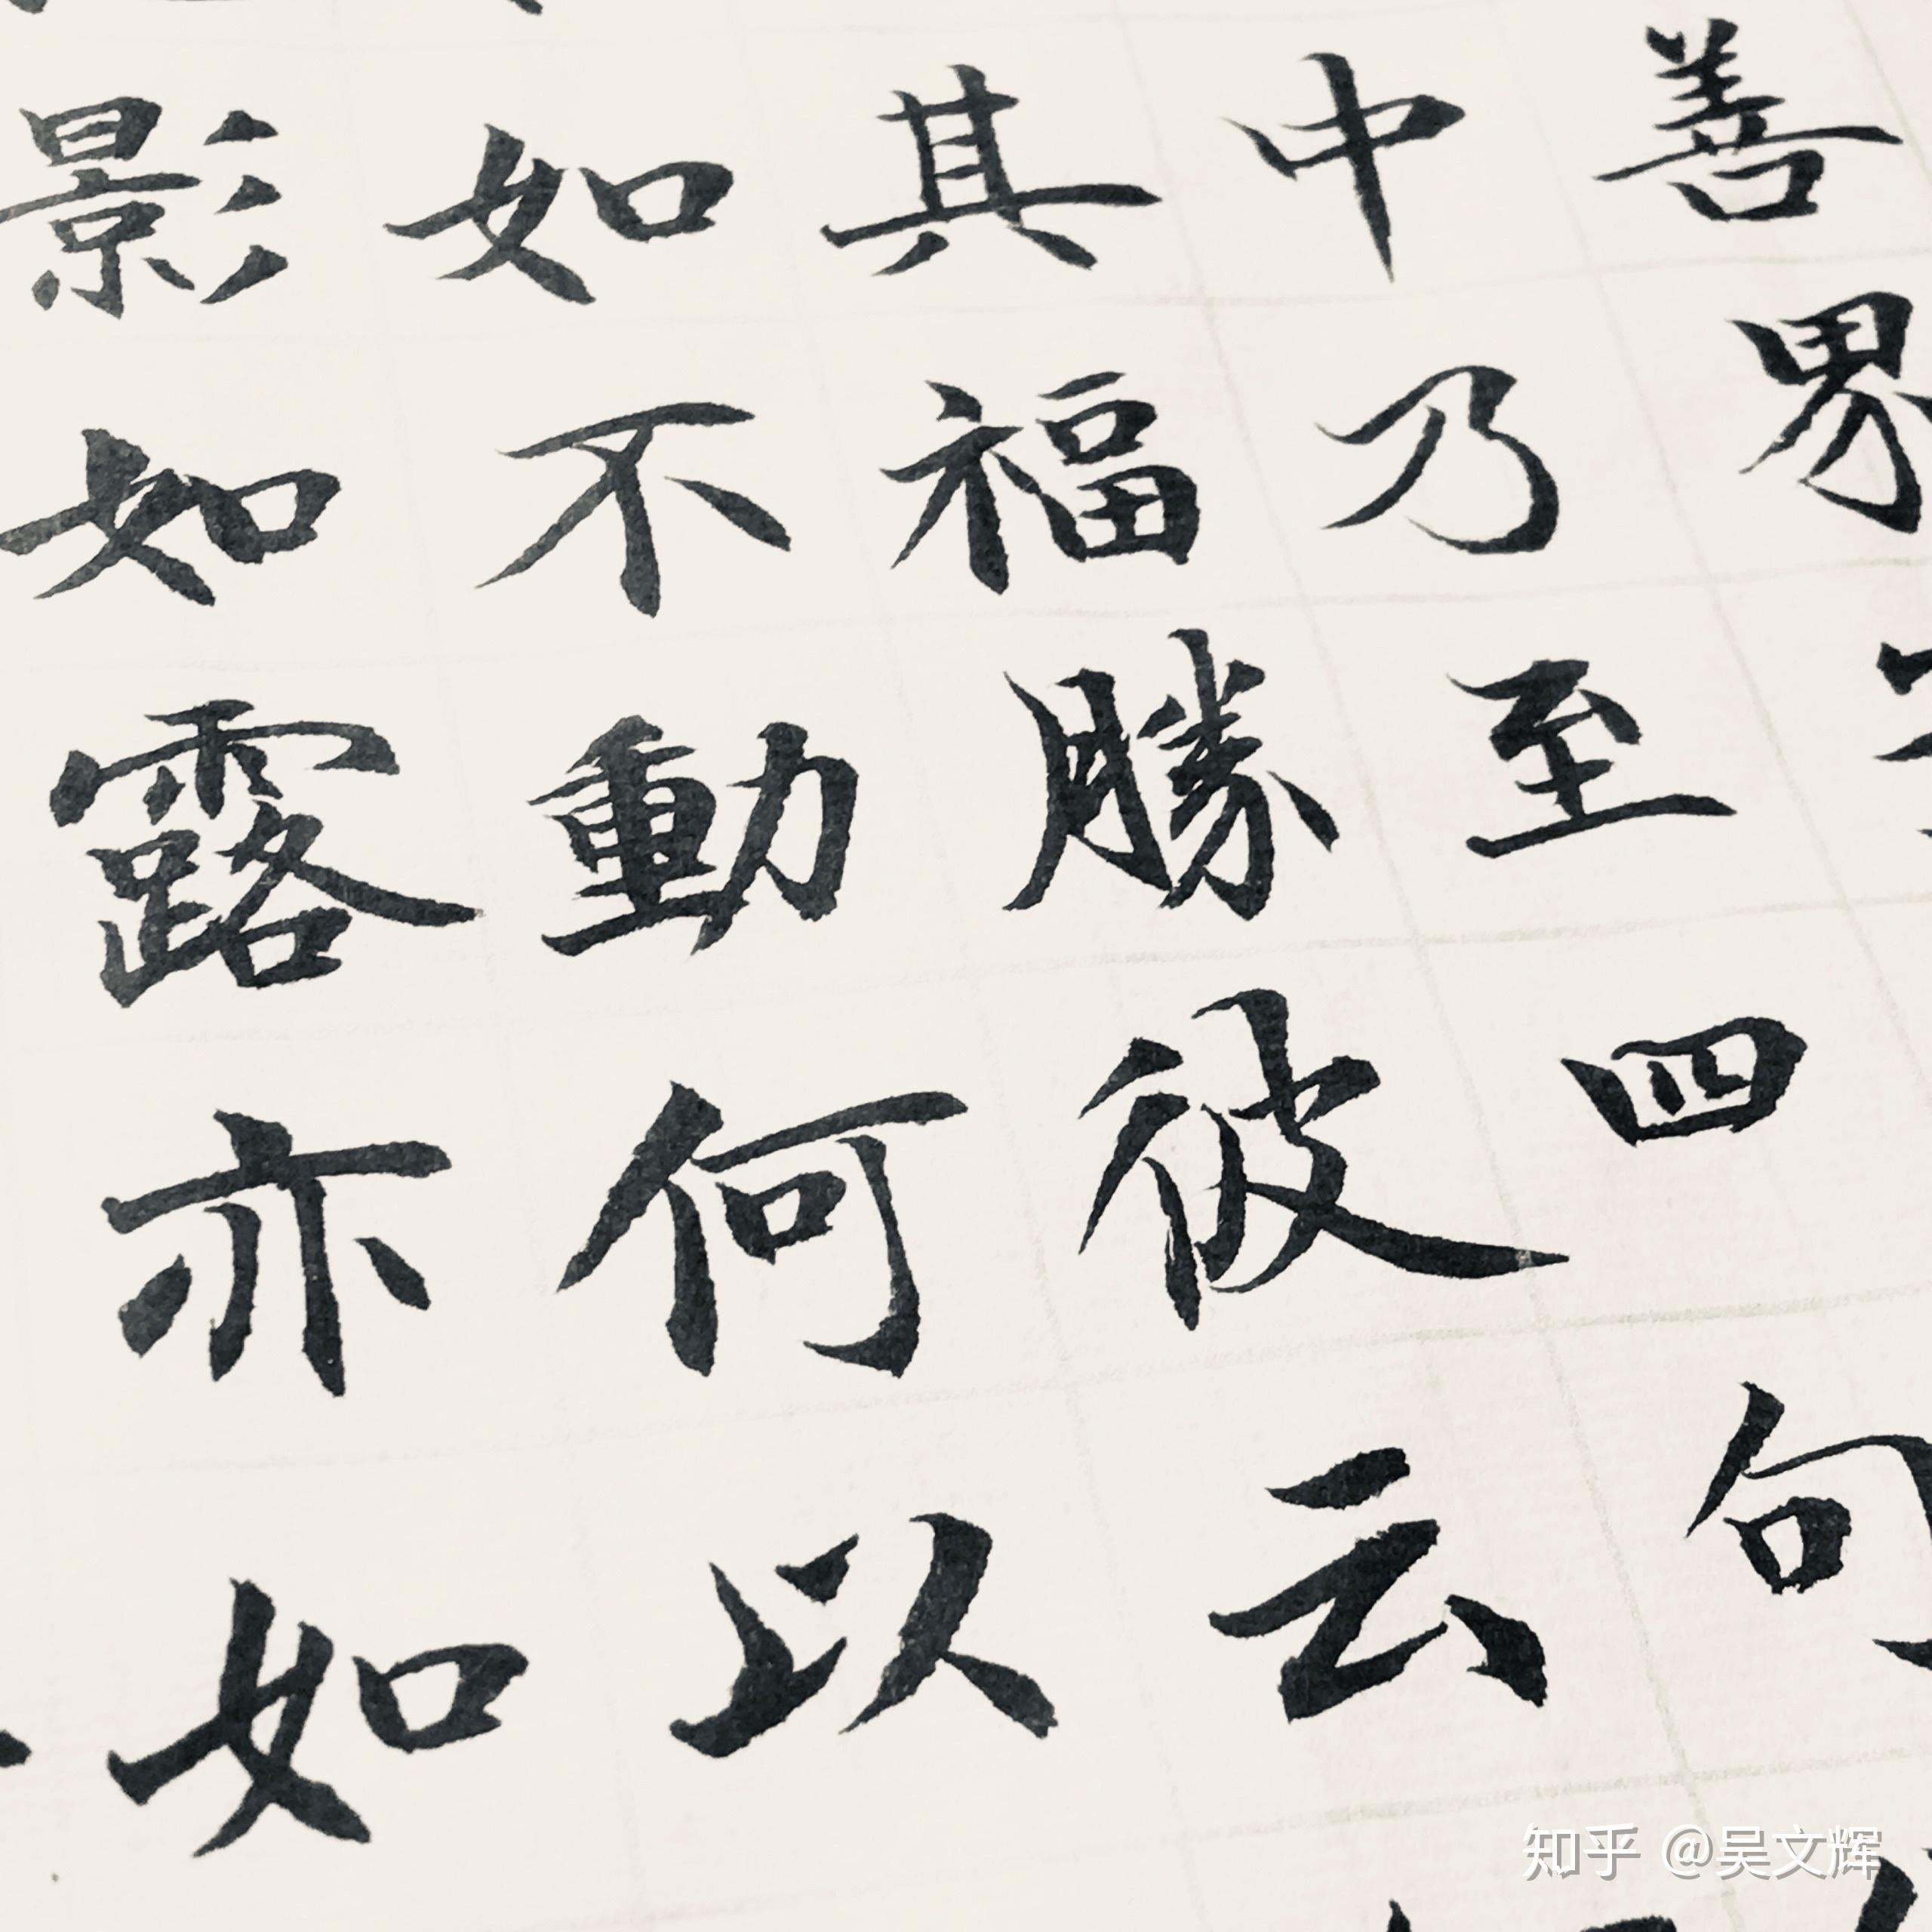 善界
中乃至四句
其福勝彼云
如不動何以
影如露亦如
知乎 @吴文辉